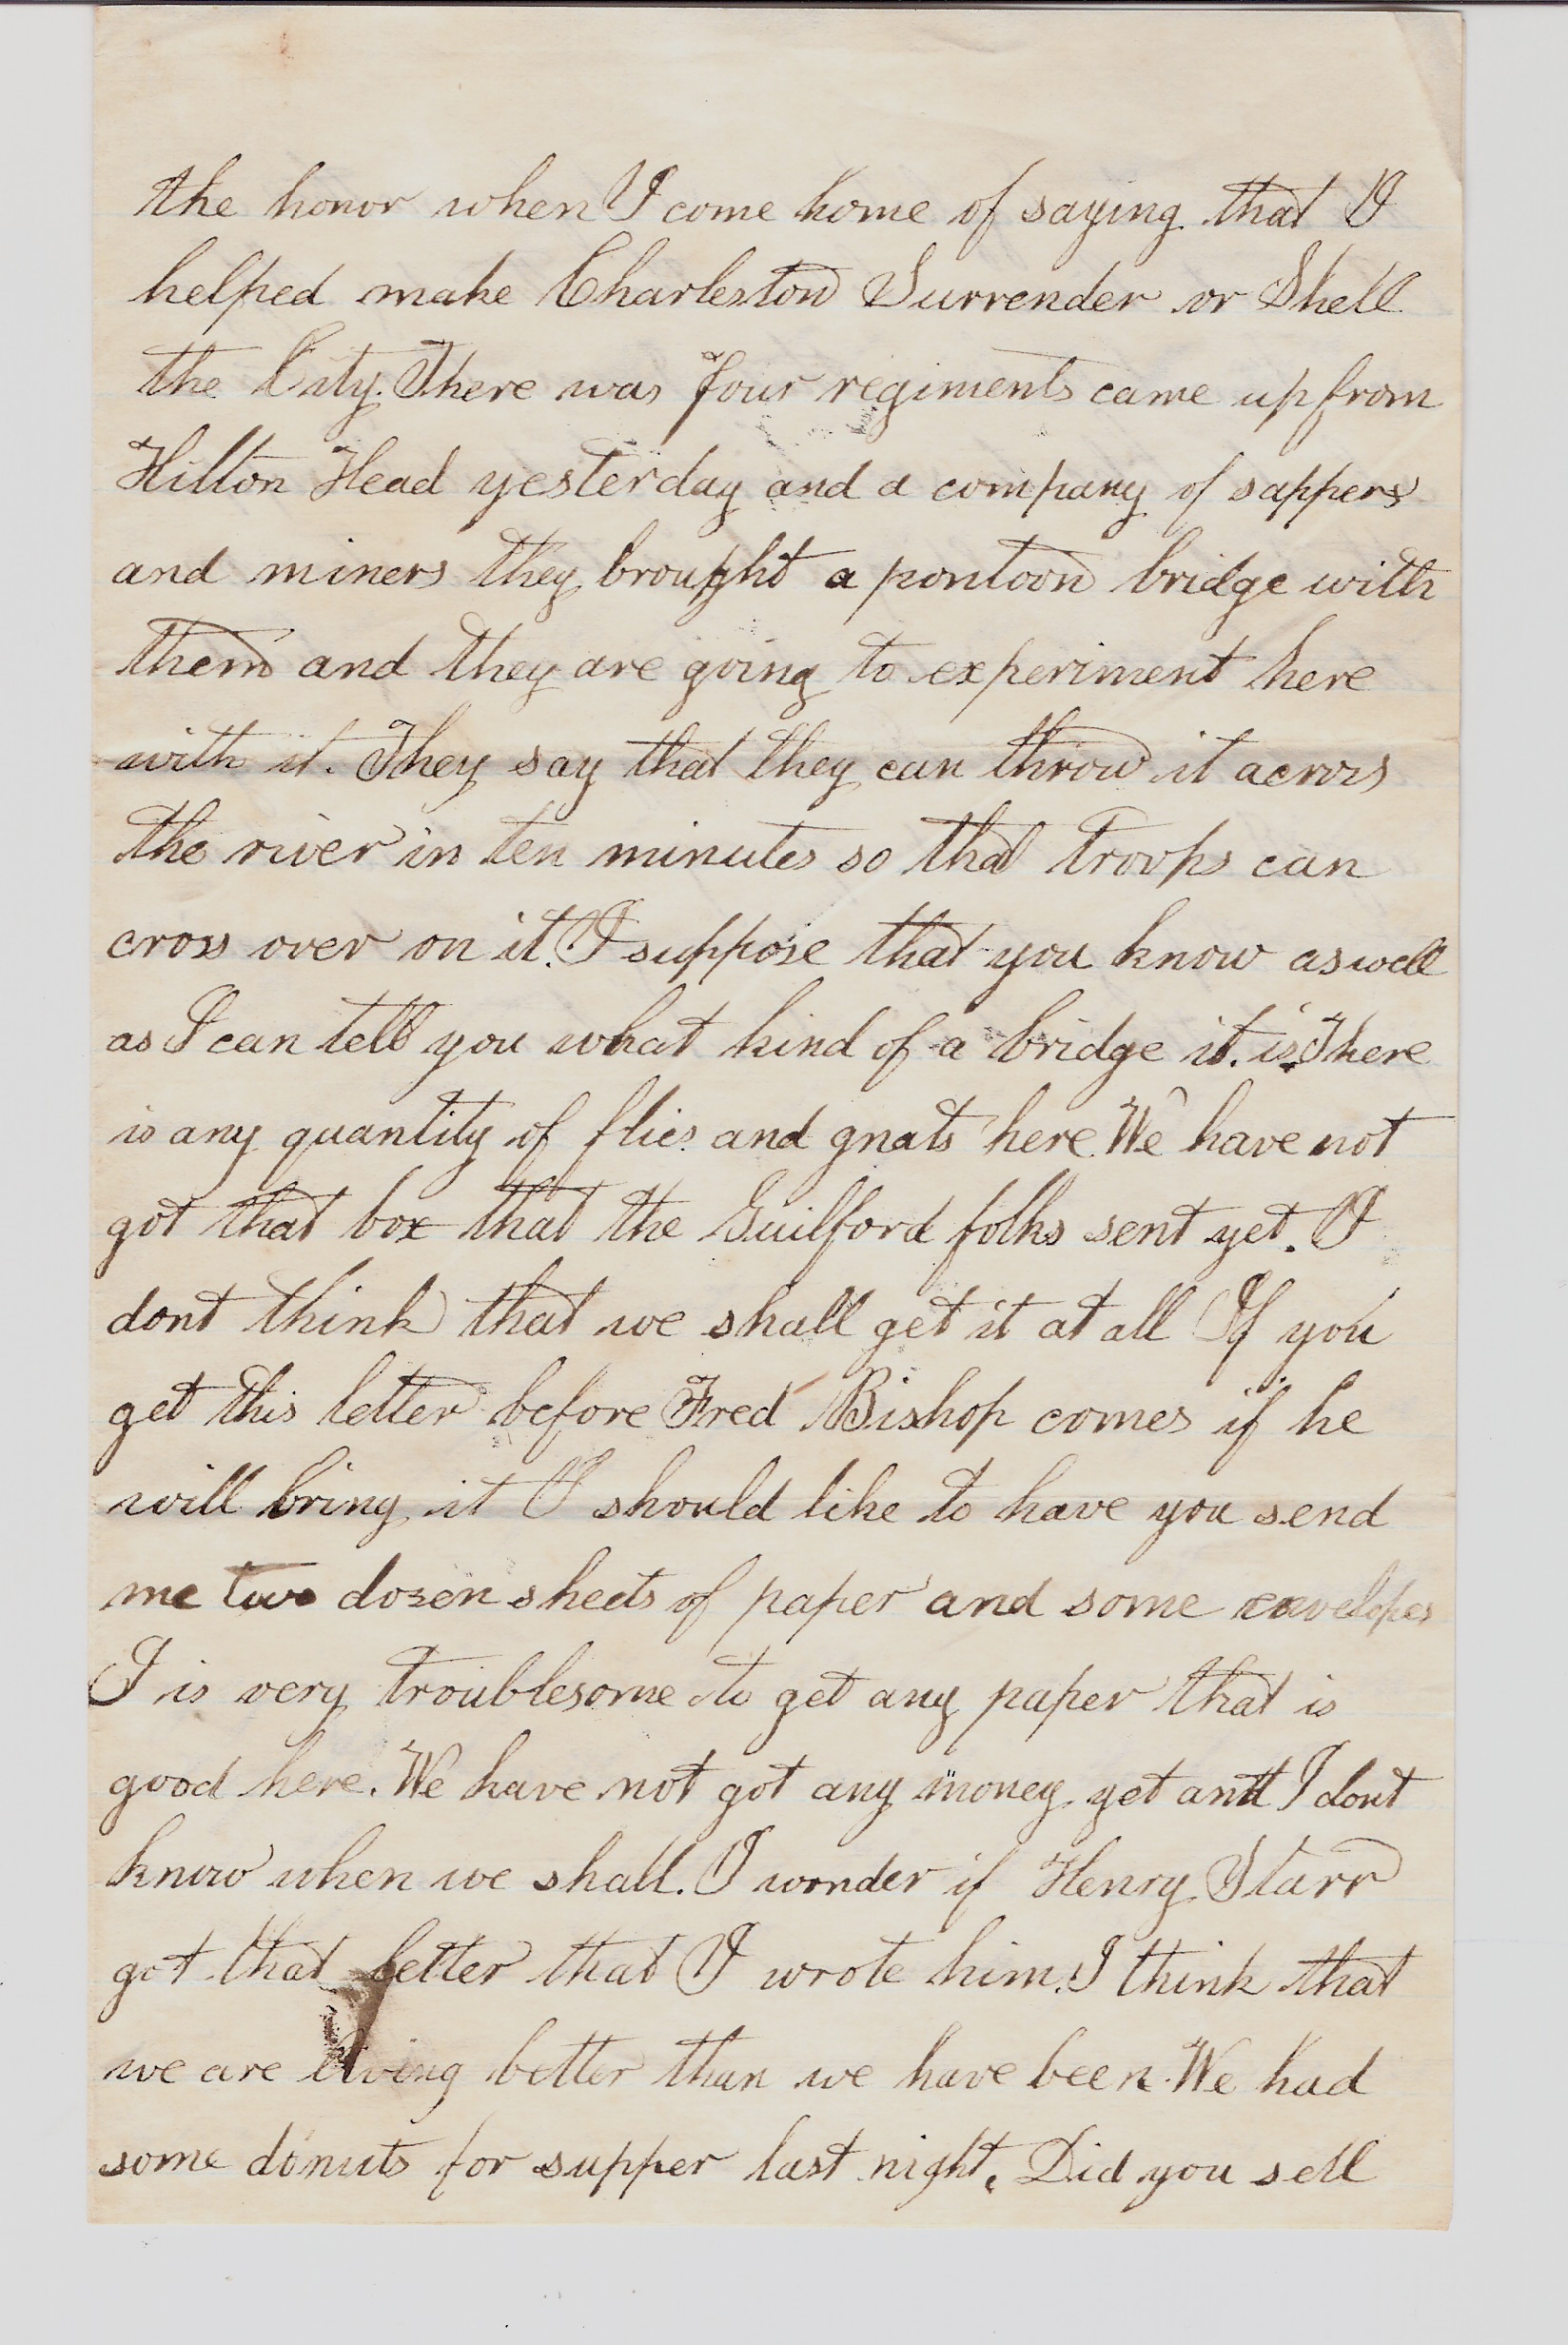 the honor when I come home of saying that I
helped make Charleston Surrender or Shell
the City. There was four regiments came up from
Hilton Head yesterday and a company of sappers
and miners they brought a pontoon bridge with
them and they are going to experiment here
with it. They say that they can throw it across
the river in ten minutes so that troops can
cross over on it. I suppose that you know as well
as I can tell you what kind of a bridge it. is. There
is any quantity of flies and gnats here. We have not
got that box that the Guilford folks sent yet. I
dont think that we shall get it at all If you
get this letter before Fred Bishop comes if he
will bring it I should like to have you send
me two dozen sheets of paper and some envelopes
I is very troublesome to get any paper that is
good here. We have not got any money yet and I dont
know when we shall. I wonder if Henry Starr
got that letter that I wrote him. I think that
we are living better than we have been. We had
some donuts for supper last night. Did you sell